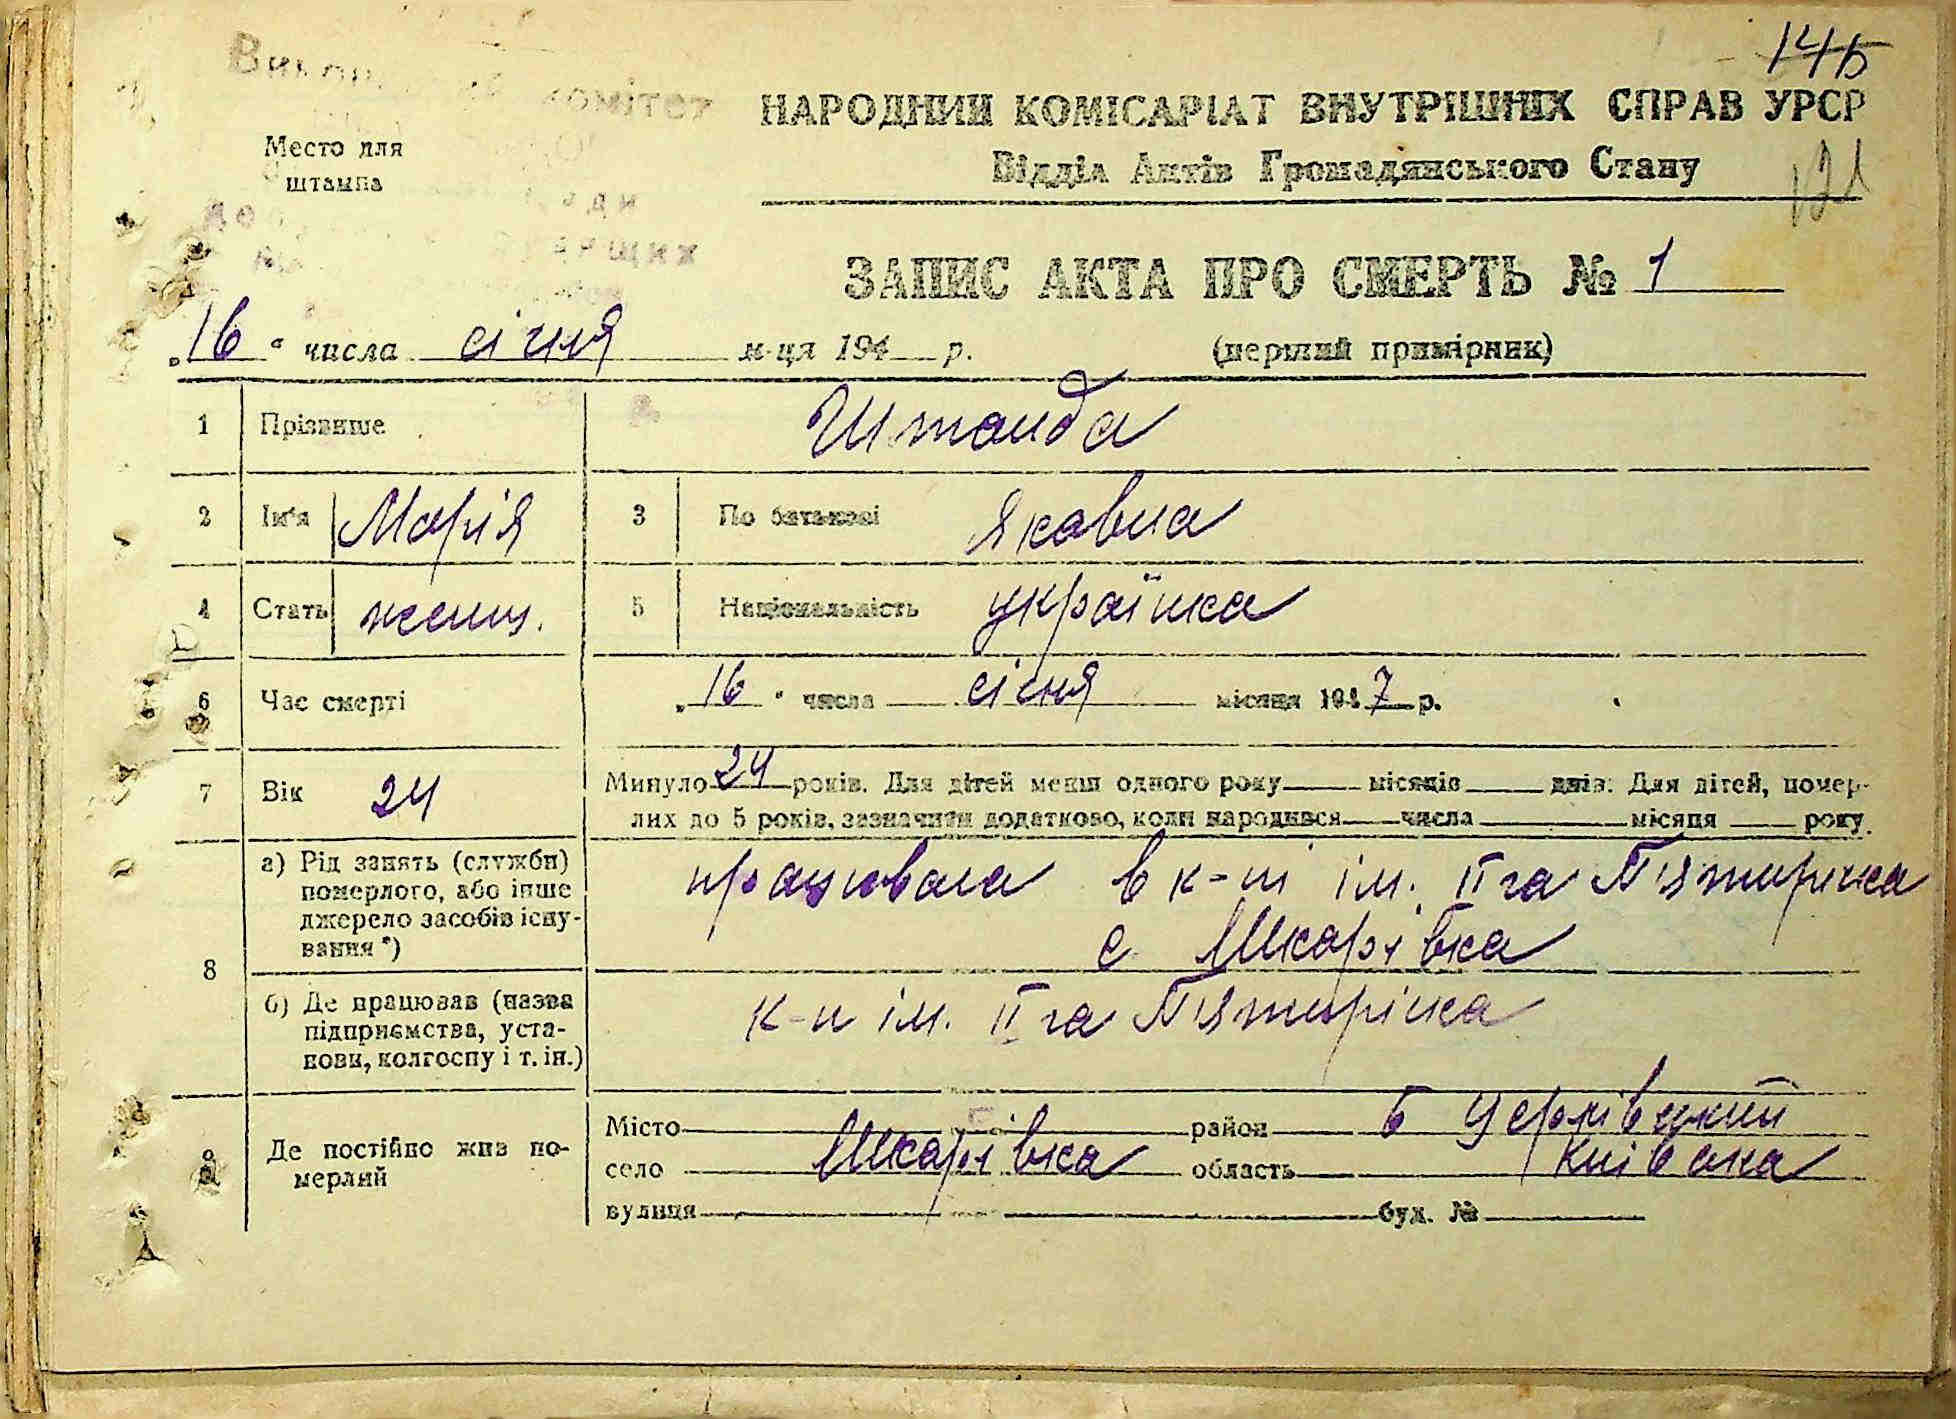 145
комітет
НАРОДНИЙ КОМІСАРІАТ ВНУТРІШНІХ СПРАВ УРСР
Место для
штампа
Відділ Актів Громадянського Стану
121
ЗАПИС АКТА ПРО СМЕРТЬ № 1
„16“ числа січня м-ця 194 р. (перший примірник)
1 Прізвище Штанда
2 Ім'я Марія 3 По батькові Якавна
4 Стать женщ. 5 Національність українка
6 Час смерті „16“ числа січня місяця 1947 р.
7 Вік 24 Минуло 24 років. Для дітей менш одного року місяців днів. Для дітей, помер-
лих до 5 років, зазначити додатково, коли народився числа місяця року
8 а) Рід занять (служби)
померлого, або інше
джерело засобів існу-
вання *)
працювала в к-пі ім. II га П'ятирічка
с Шкарівка
б) Де працював (назва
підприємства, уста-
нови, колгоспу і т. ін.)
к-п ім. II га П'ятирічка
9 Де постійно жив по-
мерлий
Місто район Б Церківський
село Шкарівка область Київска
вулиця буд. №